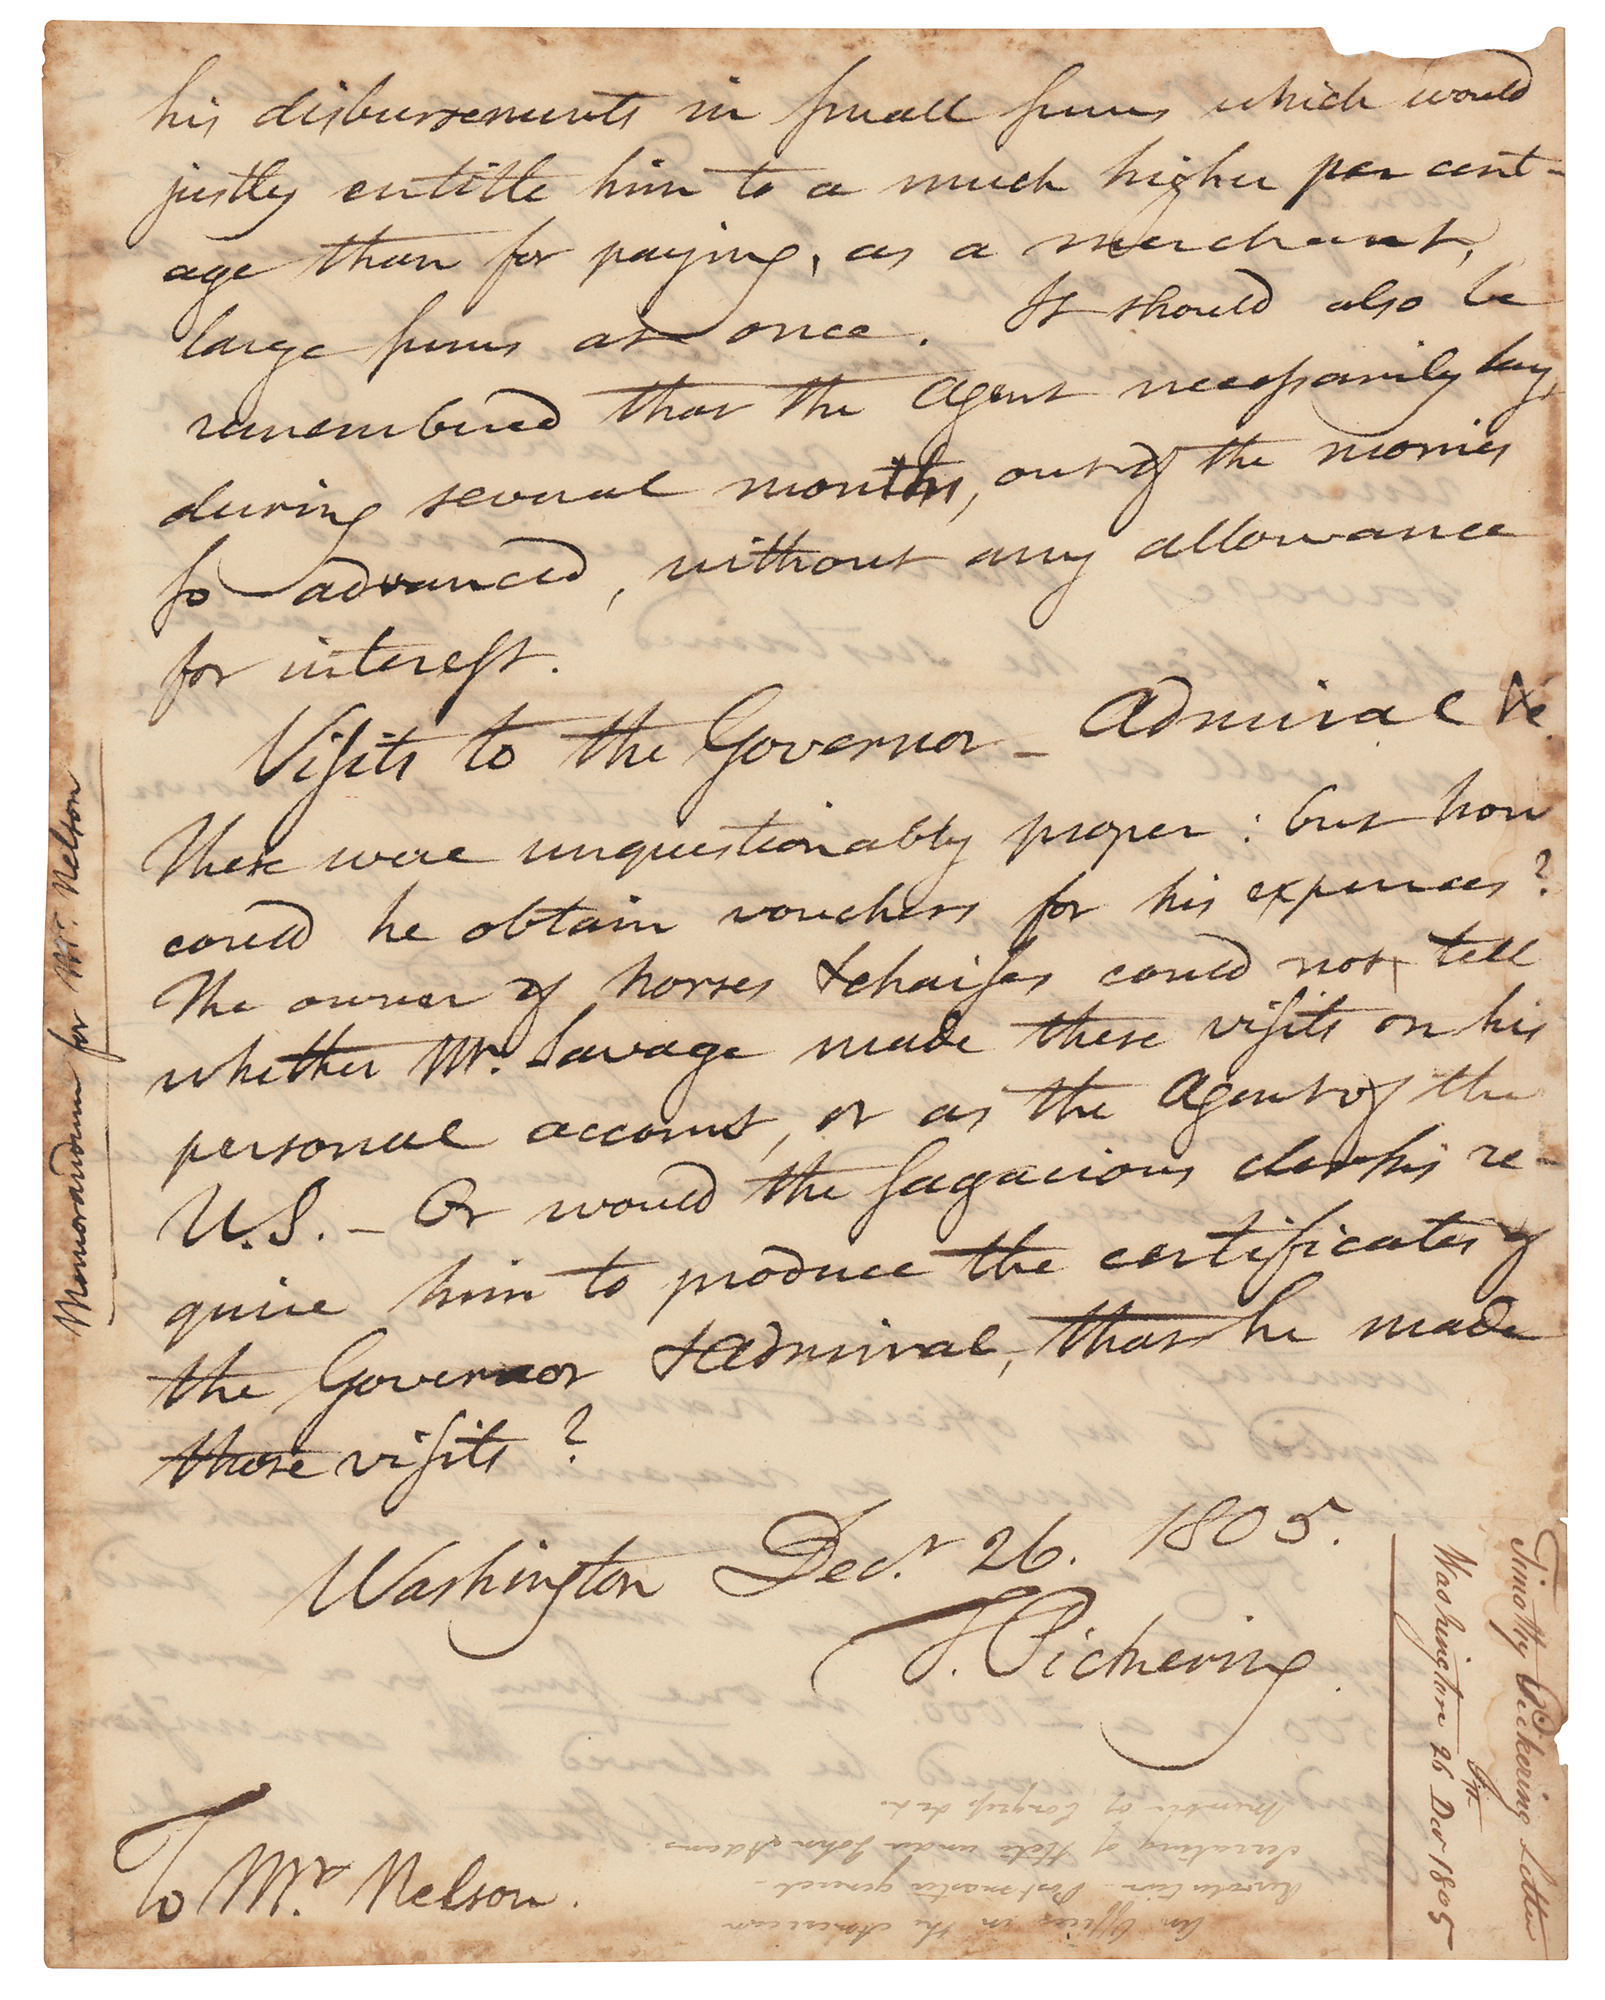 his disbursements in small sums which would
justly entitle him to a much higher per cent-
age than for paying, as a merchant,
large sums at once. It should also be
remembered that the Agent necessarily lay,
during several months, out of the monies
so advanced, without any allowance
for interest.
Visits to the Governor - Admiral &c.
These were unquestionably proper: but how
could he obtain vouchers for his expences?
The owner of horses & chaises could not tell
whether Mr. Savage made these visits on his
personal account, or as the Agent of the
U.S. - Or would the sagacious clerks re-
quire him to produce the certificates of
the Governor & Admiral, that he made
those visits?
Washington Decr. 26. 1805.
T. Pickering.
To Mr. Nelson.
Memorandum for Mr. Nelson
Timothy Pickering Letter
Washington 26 Decr 1805
An Officer in the American
Revolution - Postmaster general -
Secretary of State under John Adams.
Member of Congress &c.